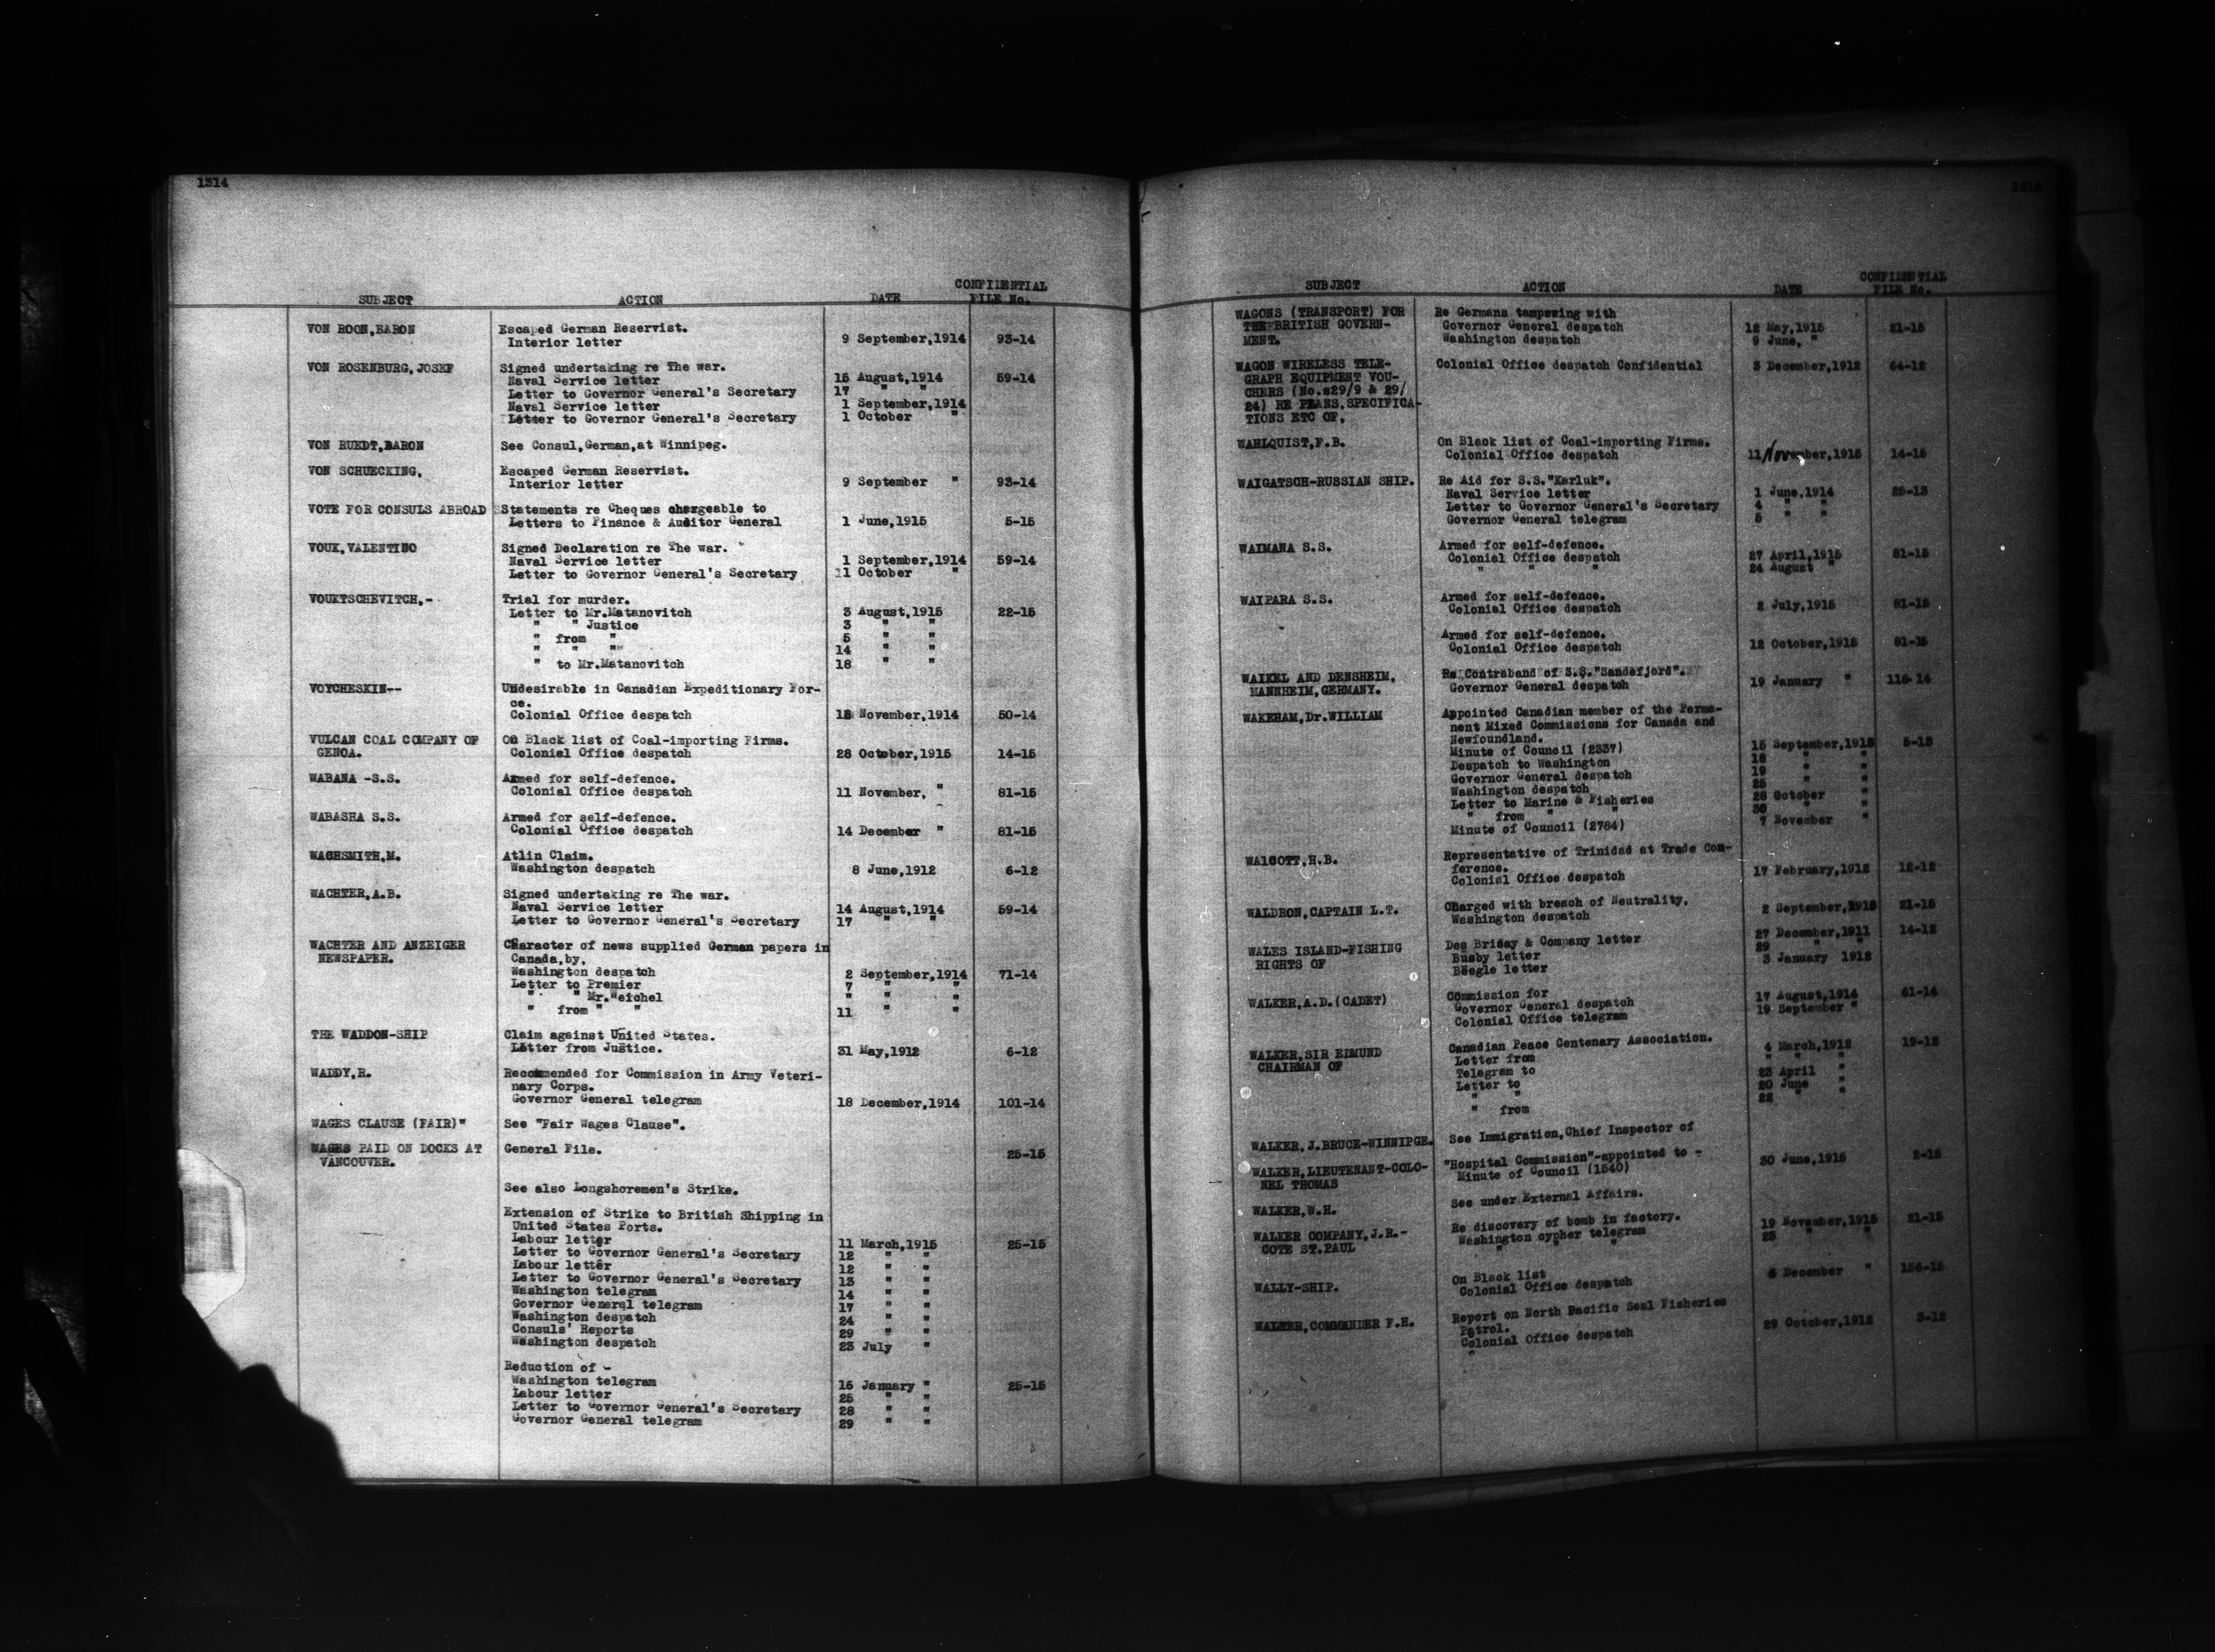 1314
SUBJECT ACTION DATE CONFIDENTIAL FILE No.
VON ROON,BARON Escaped German Reservist.
Interior letter 9 September,1914 93-14
VON ROSENBURG,JOSEF Signed undertaking re The war.
Naval Service letter 15 August,1914 59-14
Letter to Governor General's Secretary 17 " "
Naval Service letter 1 September,1914
Letter to Governor General's Secretary 1 October "
VON RUEDT,BARON See Consul,German,at Winnipeg.
VON SCHUECKING, Escaped German Reservist.
Interior letter 9 September " 93-14
VOTE FOR CONSULS ABROAD Statements re Cheques chargeable to
Letters to Finance & Auditor General 1 June,1915 5-15
VOUK,VALENTINO Signed Declaration re The war.
Naval Service letter 1 September,1914 59-14
Letter to Governor General's Secretary 11 October "
VOUKTSCHEVITCH,- Trial for murder.
Letter to Mr.Matanovitch 3 August,1915 22-15
" " Justice 3 " "
" from " 5 " "
" " " 14 " "
" to Mr.Matanovitch 18 " "
VOYCHESKIN-- Undesirable in Canadian Expeditionary For-
ce.
Colonial Office despatch 18 November,1914 50-14
VULCAN COAL COMPANY OF On Black list of Coal-importing Firms.
GENOA. Colonial Office despatch 28 October,1915 14-15
WABANA -S.S. Armed for self-defence.
Colonial Office despatch 11 November, " 81-15
WABASHA S.S. Armed for self-defence.
Colonial Office despatch 14 December " 81-15
WACHSMITH,M. Atlin Claim.
Washington despatch 8 June,1912 6-12
WACHTER,A.B. Signed undertaking re The war.
Naval Service letter 14 August,1914 59-14
Letter to Governor General's Secretary 17 " "
WACHTER AND ANZEIGER Character of news supplied German papers in
NEWSPAPER. Canada,by.
Washington despatch 2 September,1914 71-14
Letter to Premier 7 " "
" " Mr.Weichel " " "
" from " " 11 " "
THE WADDON-SHIP Claim against United States.
Letter from Justice. 31 May,1912 6-12
WADDY,R. Recommended for Commission in Army Veteri-
nary Corps.
Governor General telegram 18 December,1914 101-14
WAGES CLAUSE (FAIR)" See "Fair Wages Clause".
WAGES PAID ON DOCKS AT General File. 25-15
VANCOUVER.
See also Longshoremen's Strike.
Extension of Strike to British Shipping in
United States Ports.
Labour letter 11 March,1915 25-15
Letter to Governor General's Secretary 12 " "
Labour letter 12 " "
Letter to Governor General's Secretary 13 " "
Washington telegram 14 " "
Governor General telegram 17 " "
Washington despatch 24 " "
Consuls' Reports 29 " "
Washington despatch 23 July "
Reduction of -
Washington telegram 16 January " 25-15
Labour letter 25 " "
Letter to Governor General's Secretary 28 " "
Governor General telegram 29 " "
1315
SUBJECT ACTION DATE CONFIDENTIAL FILE No.
WAGONS (TRANSPORT) FOR Re Germans tampering with
THE BRITISH GOVERN- Governor General despatch 12 May,1915 21-15
MENT. Washington despatch 9 June, "
WAGON WIRELESS TELE- Colonial Office despatch Confidential 3 December,1912 64-12
GRAPH EQUIPMENT VOU-
CHERS (No.s29/9 & 29/
24) RE PLANS,SPECIFICA-
TIONS ETC OF,
WAHLQUIST,F.B. On Black list of Coal-importing Firms.
Colonial Office despatch 11 November,1915 14-15
WAIGATSCH-RUSSIAN SHIP. Re Aid for S.S."Karluk".
Naval Service letter 1 June,1914 25-13
Letter to Governor General's Secretary 4 " "
Governor General telegram 5 " "
WAIMANA S.S. Armed for self-defence.
Colonial Office despatch 27 April,1915 81-15
" " " 24 August "
WAIPARA S.S. Armed for self-defence.
Colonial Office despatch 2 July,1915 81-15
Armed for self-defence.
Colonial Office despatch 12 October,1915 81-15
WAIKEL AND DENSHEIM, Re Contraband of S.S."Sandefjord".
MANNHEIM,GERMANY. Governor General despatch 19 January " 116-14
WAKEHAM,Dr.WILLIAM Appointed Canadian member of the Perma-
nent Mixed Commissions for Canada and
Newfoundland.
Minute of Council (2337) 15 September,1913 5-13
Despatch to Washington 18 " "
Governor General despatch 19 " "
Washington despatch 25 " "
Letter to Marine & Fisheries 28 October "
" from " 30 " "
Minute of Council (2784) 7 November "
WALCOTT,H.B. Representative of Trinidad at Trade Con-
ference.
Colonial Office despatch 17 February,1912 12-12
WALDRON,CAPTAIN L.T. Charged with breach of Neutrality.
Washington despatch 2 September,1915 21-15
WALES ISLAND-FISHING Des Brisay & Company letter 27 December,1911 14-12
RIGHTS OF Busby letter 29 " "
Beegle letter 3 January 1912
WALKER,A.D.(CADET) Commission for
Governor General despatch 17 August,1914 61-14
Colonial Office telegram 19 September "
WALKER,SIR EDMUND Canadian Peace Centenary Association.
CHAIRMAN OF Letter from 4 March,1912 19-12
Telegram to " " "
Letter to 23 April "
" " 20 June "
" from 22 " "
WALKER,J.BRUCE-WINNIPGE. See Immigration,Chief Inspector of
WALKER,LIEUTENANT-COLO- "Hospital Commission"-appointed to -
NEL THOMAS Minute of Council (1540) 30 June,1915 2-15
WALKER,W.H. See under External Affairs.
WALKER COMPANY,J.R.- Re discovery of bomb in factory.
COTE ST.PAUL Washington cypher telegram 19 November,1915 21-15
" " " 23 " "
WALLY-SHIP. On Black list
Colonial Office despatch 6 December " 156-15
WALTER,COMMANDER F.H. Report on North Pacific Seal Fisheries
Patrol.
Colonial Office despatch 29 October,1912 3-12
"